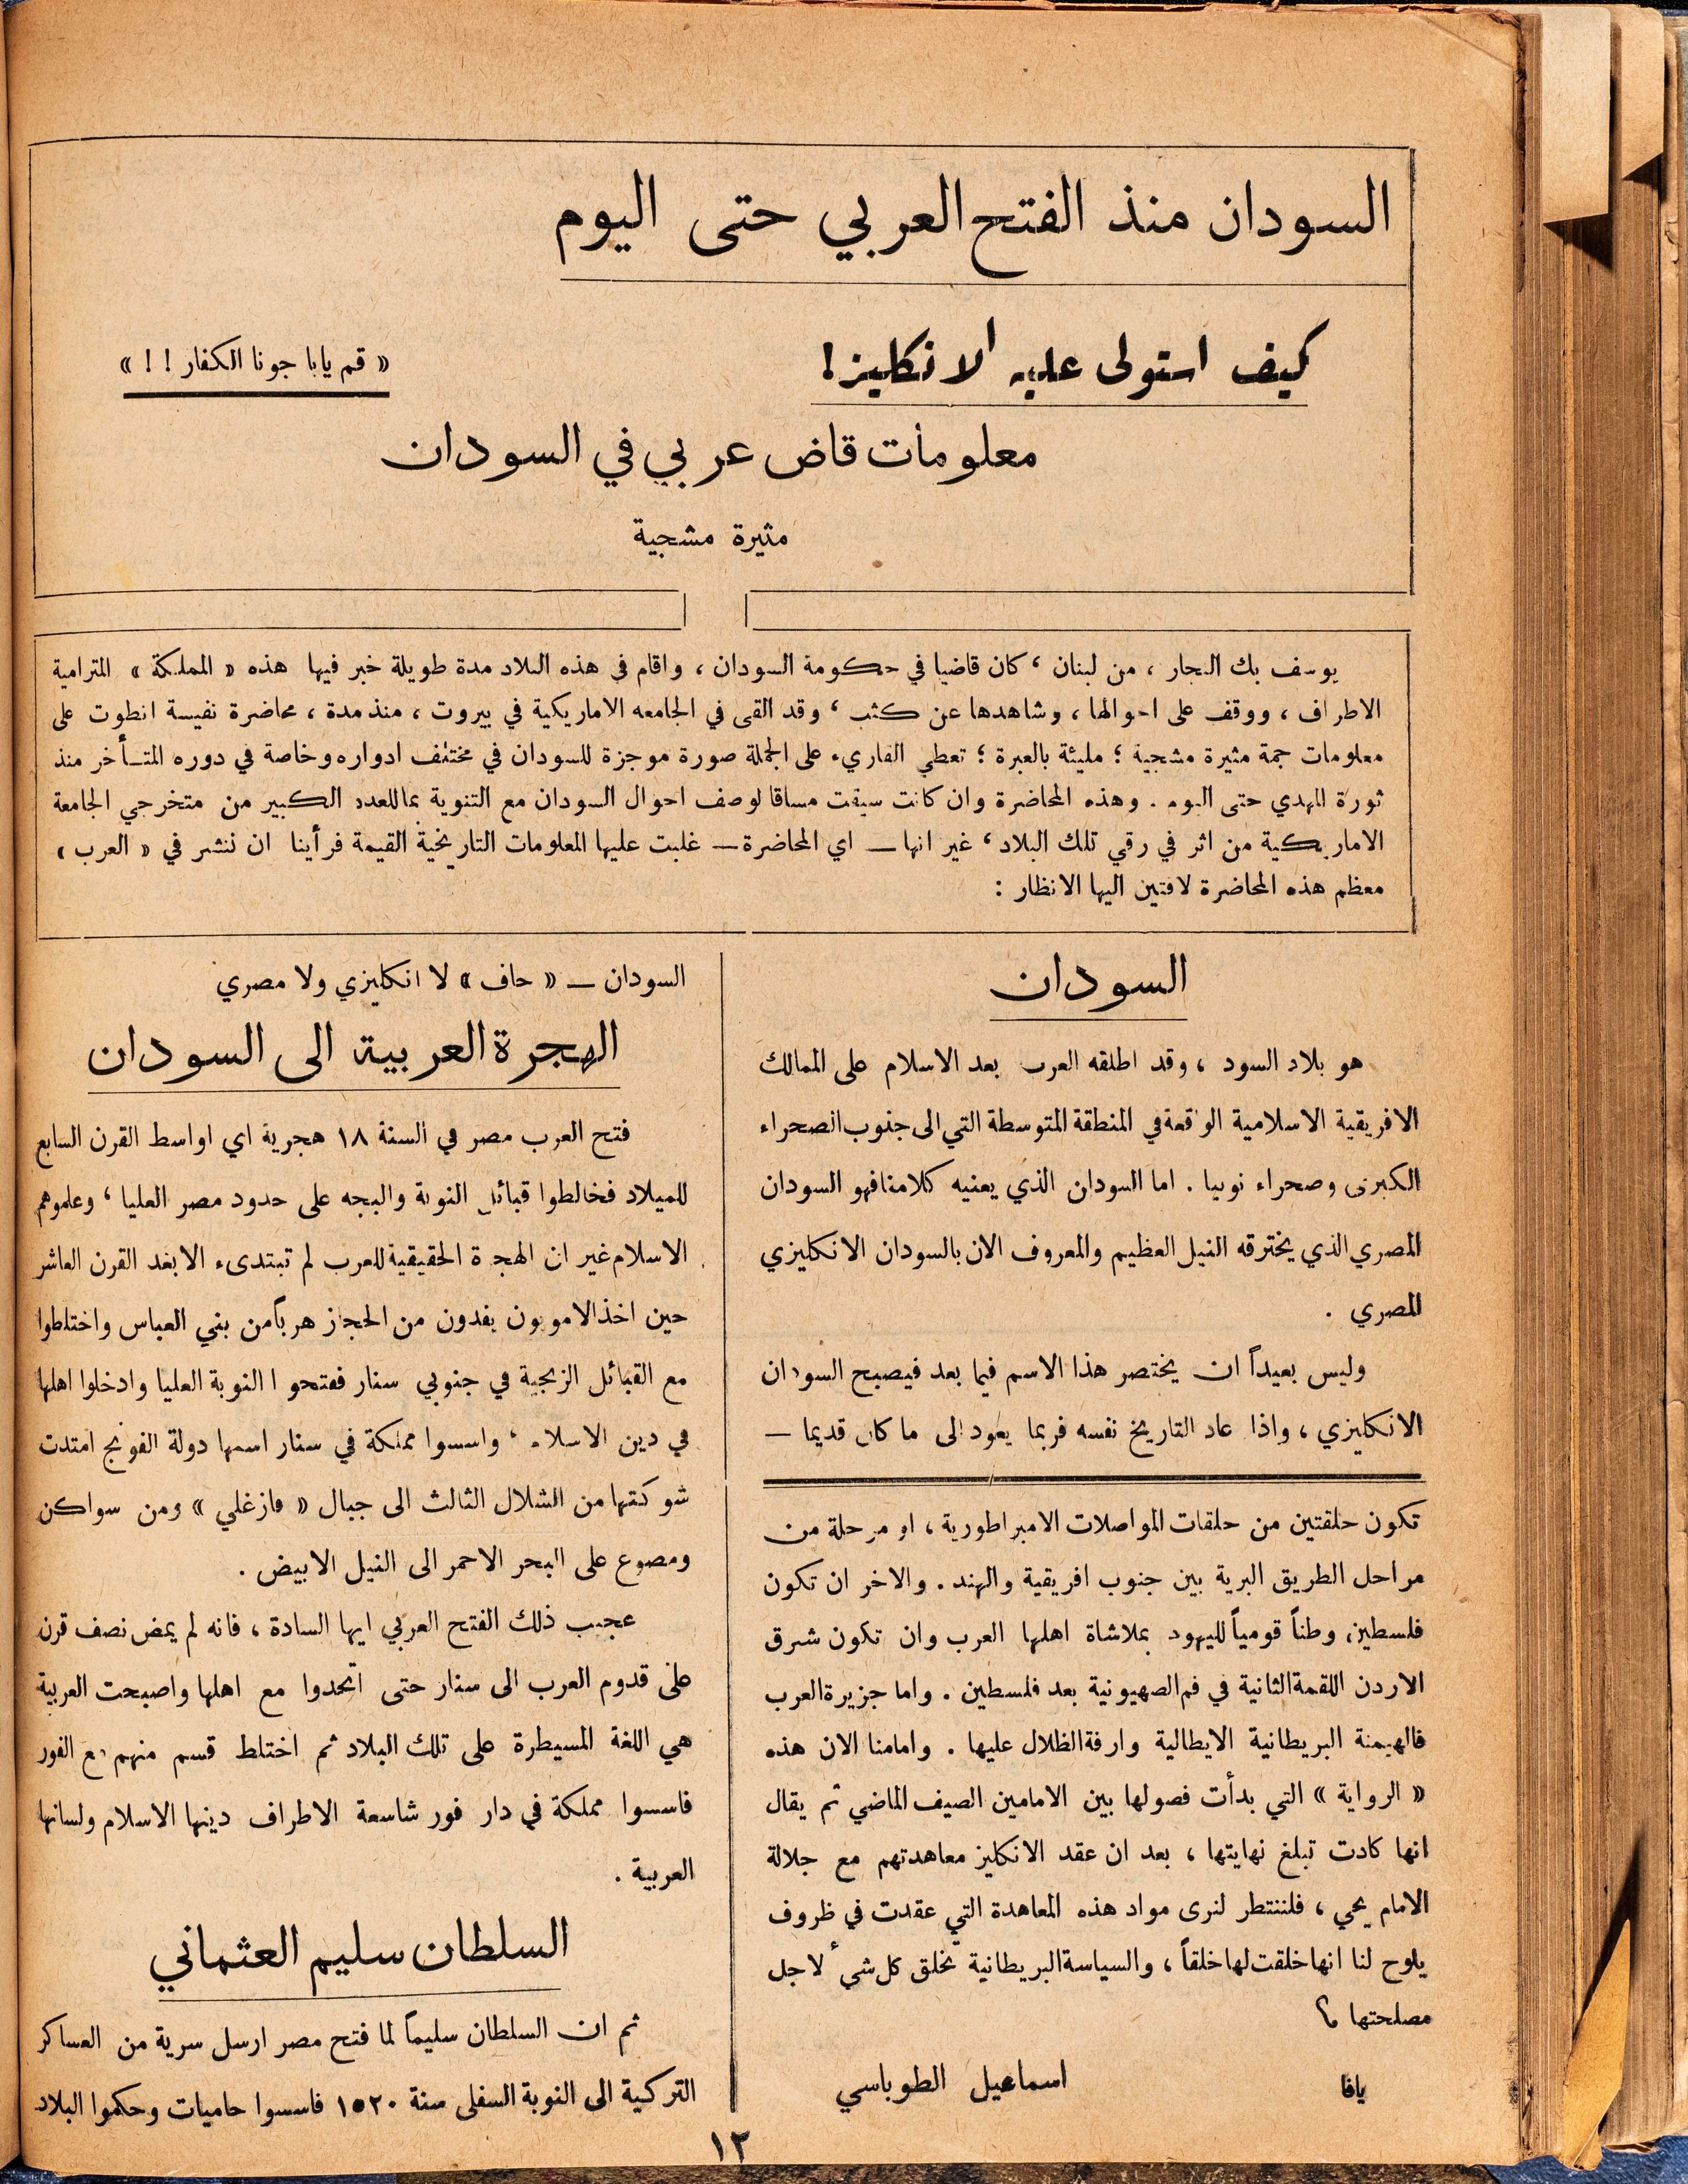 السودان منذ الفتح العربي حتى اليوم
كيف استولى عليه الانكليز!
« قم يابا جونا الكفار ! ! »
معلومات قاض عربي في السودان
مثيرة مشجية
يوسف بك النجار ، من لبنان ، كان قاضيا في حكومة السودان ، واقام في هذه البلاد مدة طويلة خبر فيها هذه « المملكة » المترامية
الاطراف ، ووقف على احوالها ، وشاهدها عن كثب ، وقد القى في الجامعه الاماريكية في بيروت ، منذ مدة ، محاضرة نفيسة انطوت على
معلومات جمة مثيرة مشجية ؛ مليئة بالعبرة ؛ تعطي القاريء على الجملة صورة موجزة للسودان في مختلف ادواره وخاصة في دوره المتأخر منذ
ثورة المهدي حتى اليوم . وهذه المحاضرة وان كانت سيقت مساقا لوصف احوال السودان مع التنوية بما للعدد الكبير من متخرجي الجامعة
الاماريكية من اثر في رقي تلك البلاد ، غير انها — اي المحاضرة — غلبت عليها المعلومات التاريخية القيمة فرأينا ان ننشر في « العرب »
معظم هذه المحاضرة لافتين اليها الانظار :
السودان
هو بلاد السود ، وقد اطلقه العرب بعد الاسلام على الممالك
الافريقية الاسلامية الواقعة في المنطقة المتوسطة التي الى جنوب الصحراء
الكبرى وصحراء نوبيا . اما السودان الذي يعنيه كلامنا فهو السودان
المصري الذي يخترقه النيل العظيم والمعروف الان بالسودان الانكليزي
المصري .
وليس بعيداً ان يختصر هذا الاسم فيما بعد فيصبح السودان
الانكليزي ، واذا عاد التاريخ نفسه فربما يعود الى ما كان قديما —
تكون حلقتين من حلقات المواصلات الامبراطورية ، او مرحلة من
مراحل الطريق البرية بين جنوب افريقية والهند . والاخر ان تكون
فلسطين وطناً قومياً لليهود بملاشاة اهلها العرب وان تكون شرق
الاردن اللقمة الثانية في فم الصهيونية بعد فلسطين . واما جزيرة العرب
فالهيمنة البريطانية الايطالية وارفة الظلال عليها . وامامنا الان هذه
« الرواية » التي بدأت فصولها بين الامامين الصيف الماضي ثم يقال
انها كادت تبلغ نهايتها ، بعد ان عقد الانكليز معاهدتهم مع جلالة
الامام يحي ، فلننتطر لنرى مواد هذه المعاهدة التي عقدت في ظروف
يلوح لنا انها خلقت لها خلقاً ، والسياسة البريطانية تخلق كل شيء لاجل
مصلحتها ؟
يافا
اسماعيل الطوباسي
السودان — « حاف » لا انكليزي ولا مصري
الهجرة العربية الى السودان
فتح العرب مصر في السنة ١٨ هجرية اي اواسط القرن السابع
للميلاد فخالطوا قبائل النوبة والبجه على حدود مصر العليا ، وعلموهم
الاسلام غير ان الهجرة الحقيقية للعرب لم تبتدىء الا بعد القرن العاشر
حين اخذ الامويون يفدون من الحجاز هرباً من بني العباس واختلطوا
مع القبائل الزنجية في جنوبي سنار ففتحوا النوبة العليا وادخلوا اهلها
في دين الاسلام ، واسسوا مملكة في سنار اسمها دولة الفونج امتدت
شوكتها من الشلال الثالث الى جبال « فازغلي » ومن سواكن
ومصوع على البحر الاحمر الى النيل الابيض .
عجيب ذلك الفتح العربي ايها السادة ، فانه لم يمض نصف قرن
على قدوم العرب الى سنار حتى اتحدوا مع اهلها واصبحت العربية
هي اللغة المسيطرة على تلك البلاد ثم اختلط قسم منهم مع الفور
فاسسوا مملكة في دار فور شاسعة الاطراف دينها الاسلام ولسانها
العربية .
السلطان سليم العثماني
ثم ان السلطان سليماً لما فتح مصر ارسل سرية من العساكر
التركية الى النوبة السفلى سنة ١٥٢٠ فاسسوا حاميات وحكموا البلاد
١٢